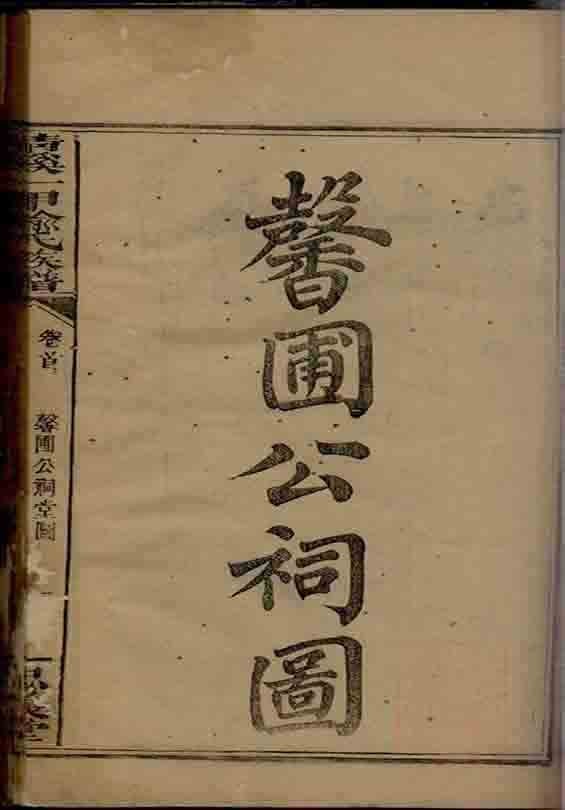 馨圃公祠圖
溪一甲氏族譜
卷首
馨圃公祠堂圖